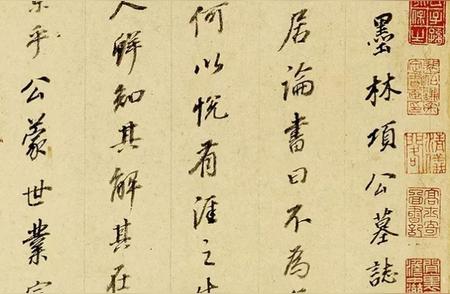 墨林項公墓誌
居論書曰不為
何以悅有涯之
人鮮知其解其在
乎公蒙世業
清儀閣